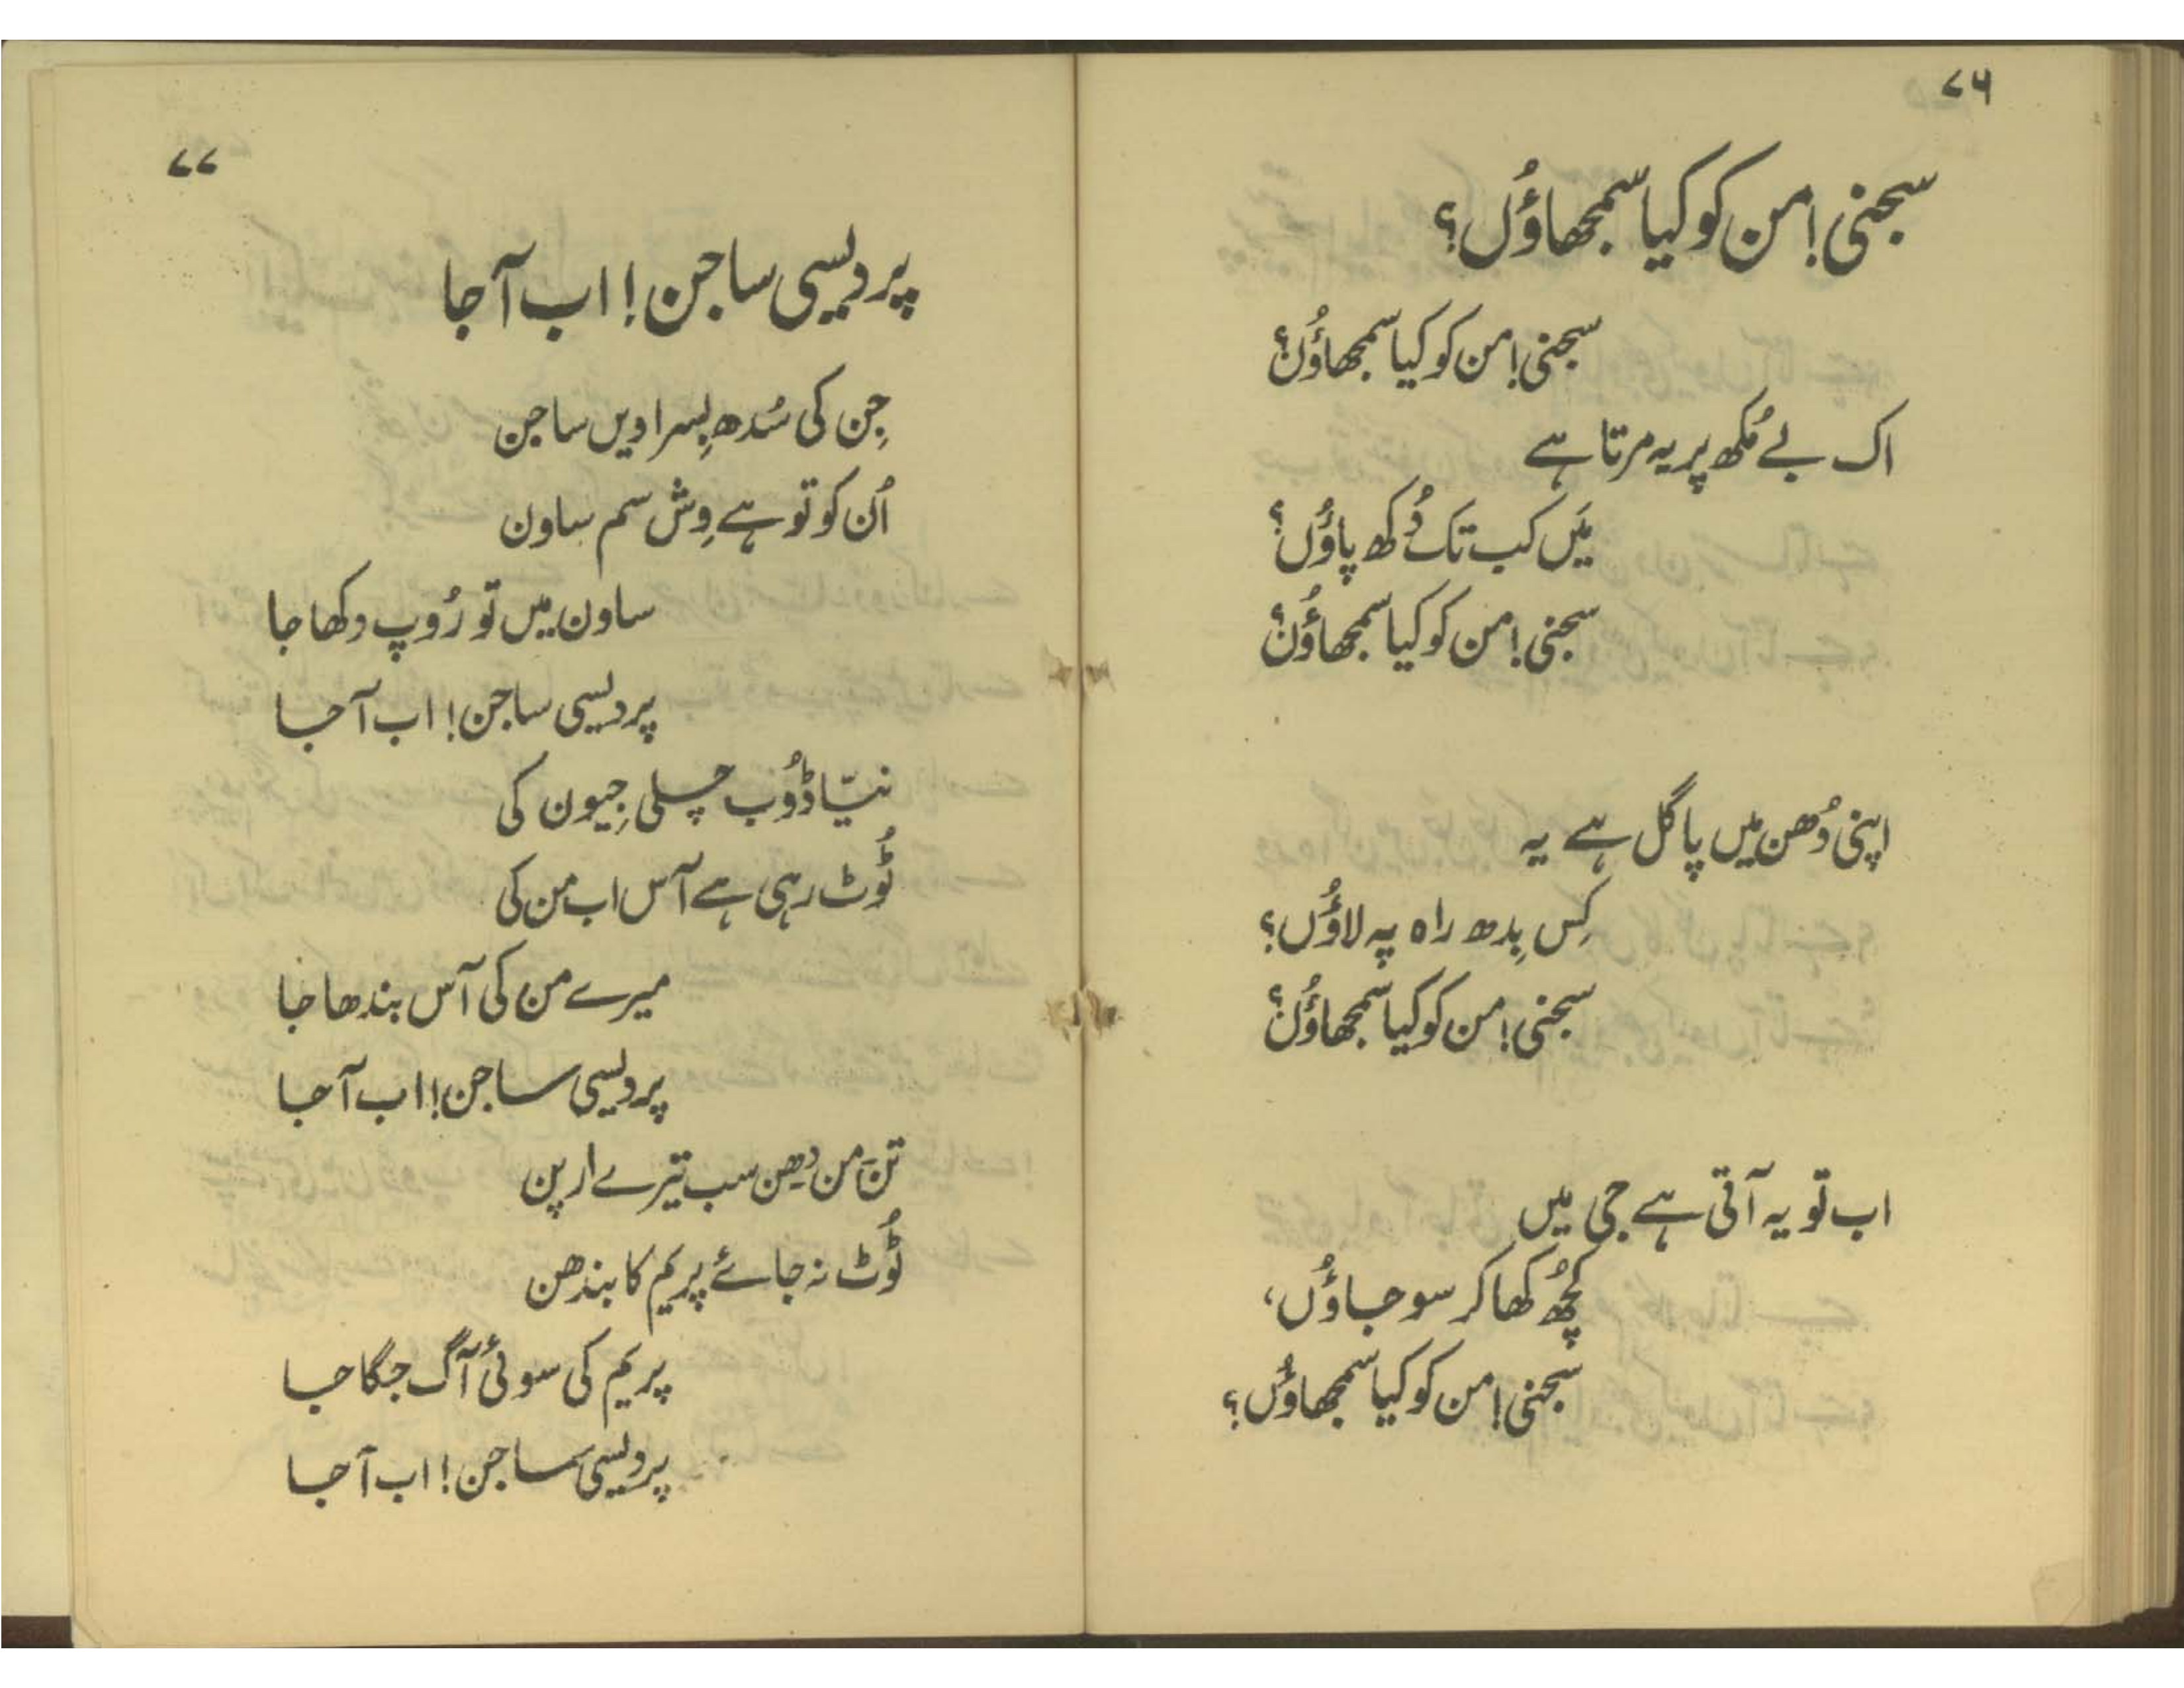 ۷۶
سجنی! من کو کیا سمجھاؤُں؟
سجنی! من کو کیا سمجھاؤُں؟
اک بے مُکھ پر یہ مرتا ہے
مَیں کب تک دُکھ پاؤُں؟
سجنی! من کو کیا سمجھاؤُں؟
اپنی دُھن میں پاگل ہے یہ
کِس بِدھ راہ پہ لاؤُں؟
سجنی! من کو کیا سمجھاؤُں؟
اب تو یہ آتی ہے جی میں
کچُھ کھا کر سو جاؤُں،
سجنی! من کو کیا سمجھاؤُں؟
۷۷
پردیسی ساجن! اب آ جا
جِن کی سُدھ بِسراویں ساجن
اُن کو تو ہے وِش سم ساون
ساون میں تو رُوپ دکھا جا
پردیسی ساجن! اب آ جا
نیّا ڈوُب چلی جِیون کی
ٹوُٹ رہی ہے آس اب من کی
میرے من کی آس بندھا جا
پردیسی ساجن! اب آ جا
تن من دھن سب تیرے ارپن
ٹوُٹ نہ جائے پریم کا بندھن
پریم کی سوئی آگ جگا جا
پردیسی ساجن! اب آ جا